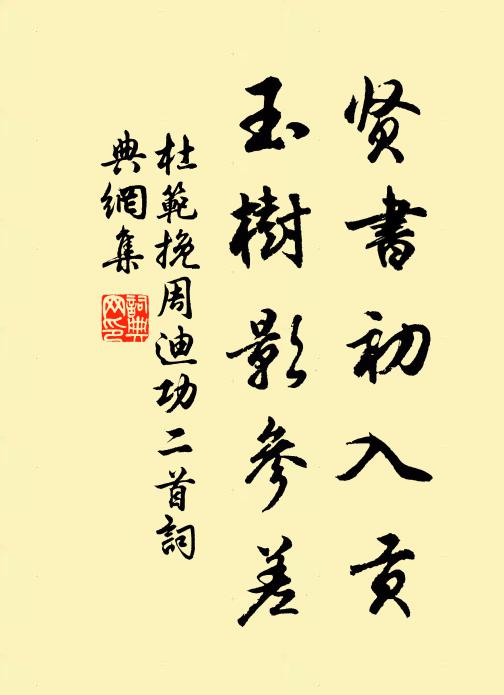 贤書初入贡
玉樹影參差
杜範挽周迪功二首詞
典網集
詞典網印